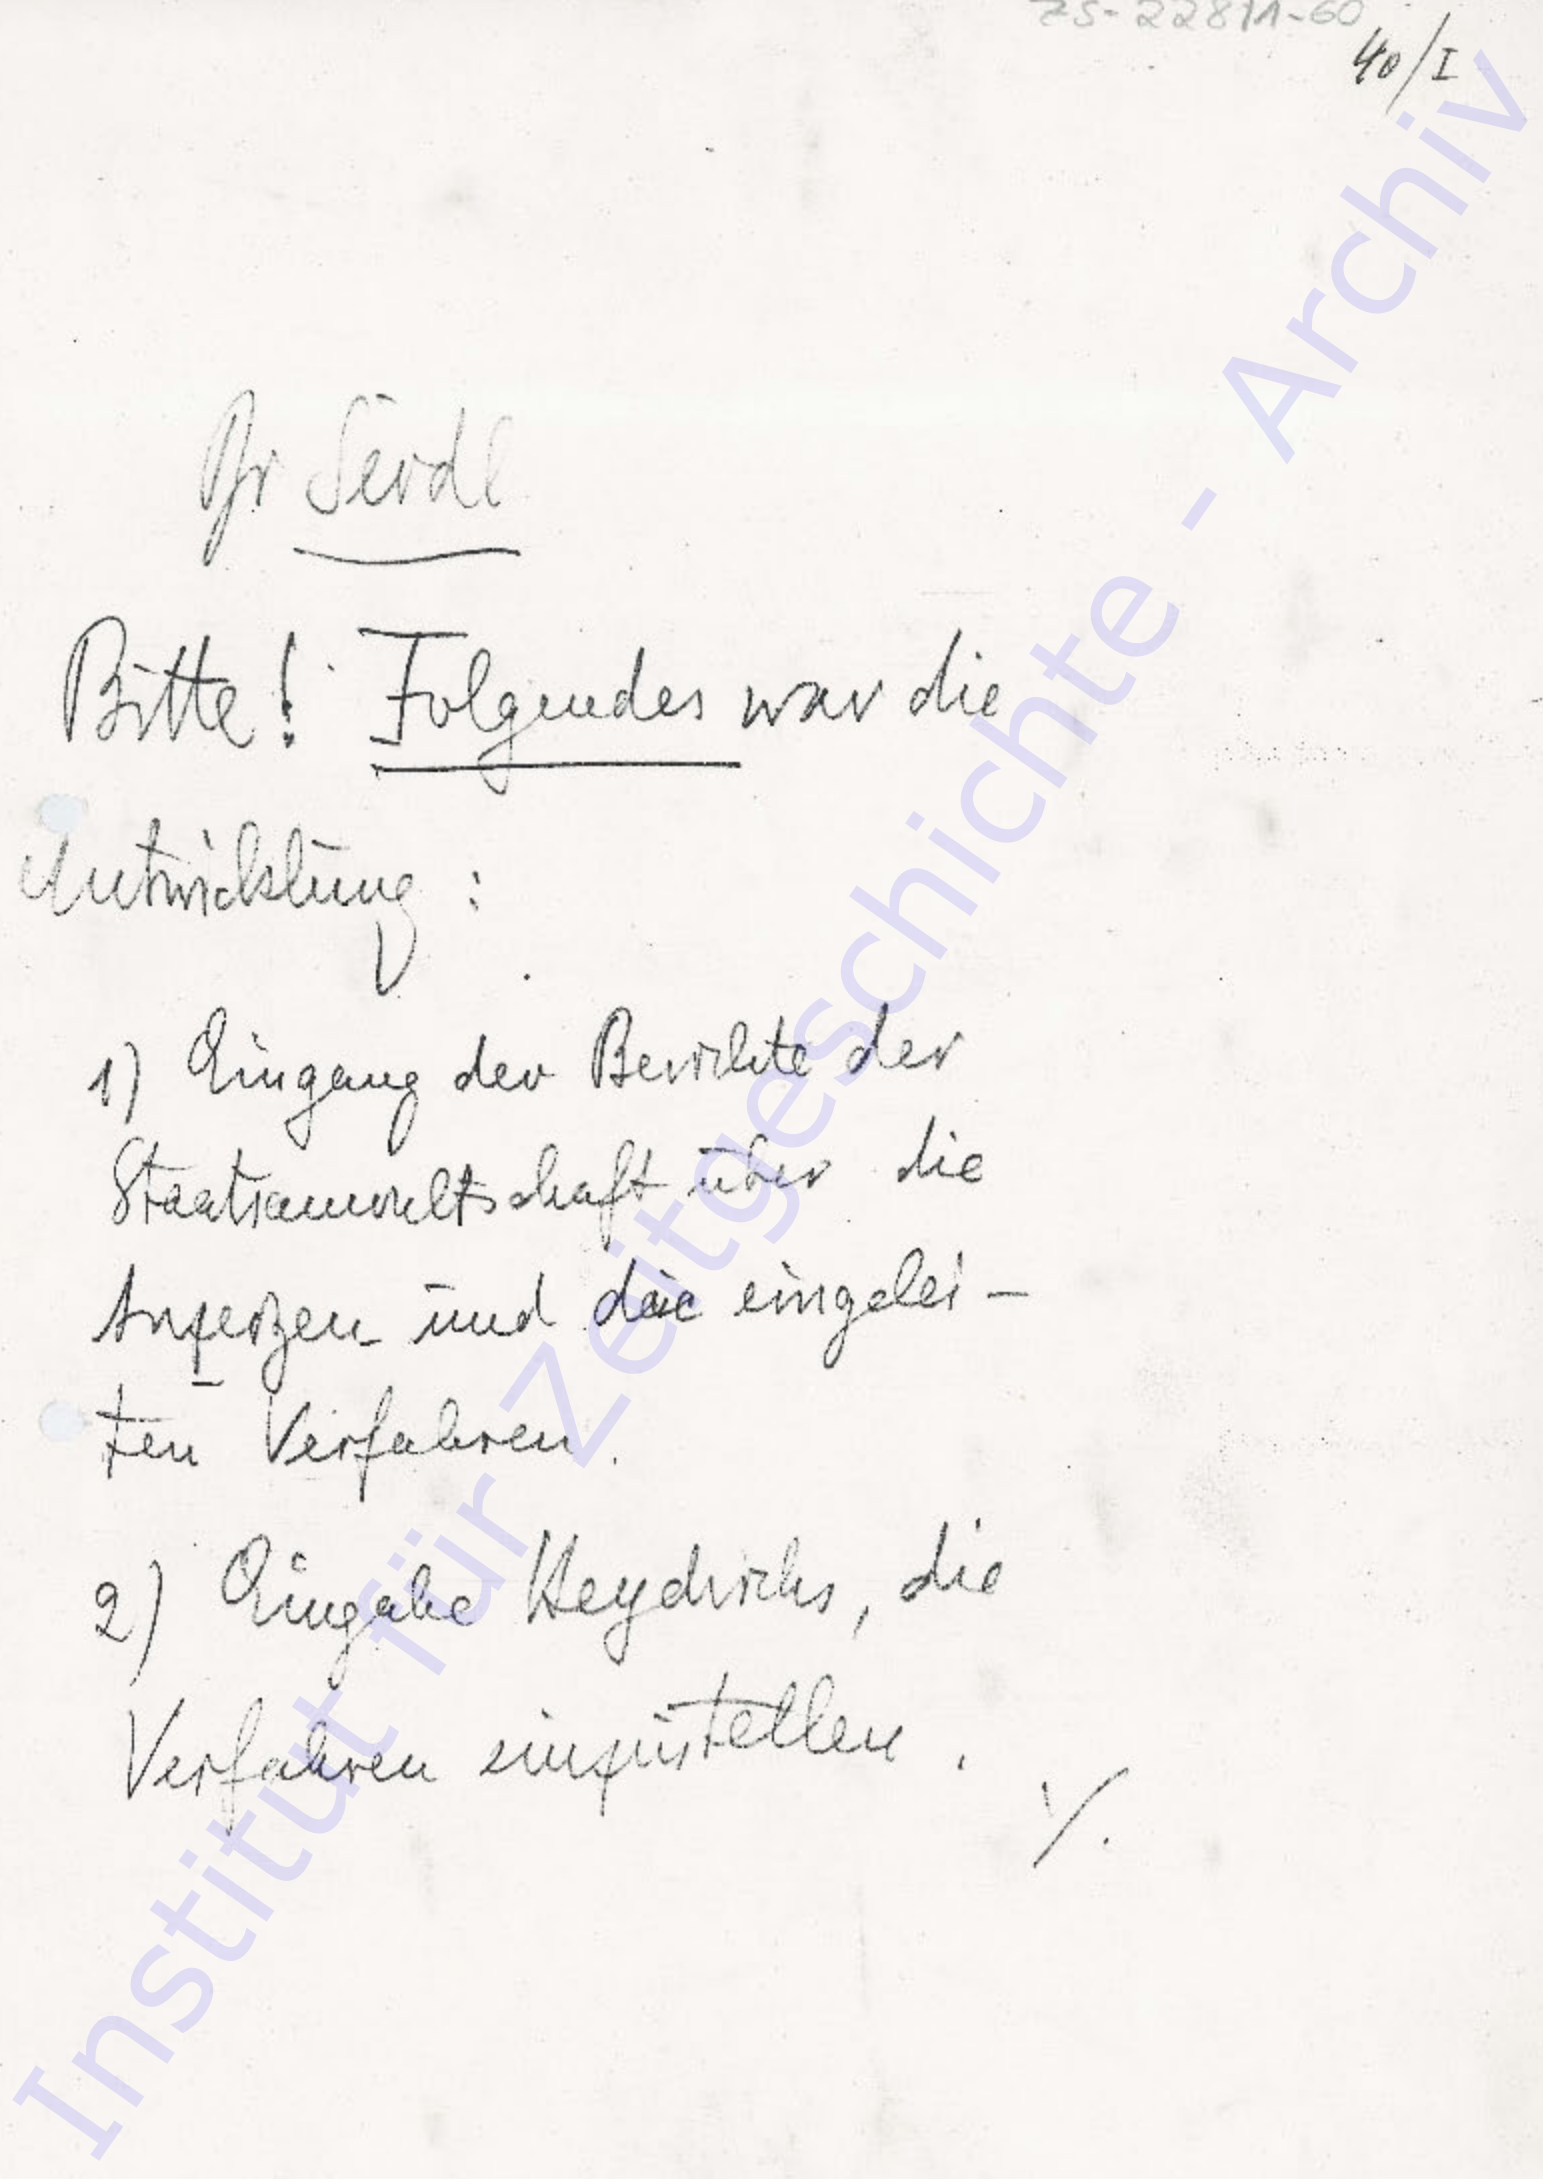 ZS-2281/1-60
40/I
Dr Seidl
Bitte! Folgendes war die
Entwicklung:
1) Eingang der Berichte der
Staatsanwaltschaft über die
Anzeigen und die eingelei-
ten Verfahren.
2) Eingabe Heydrichs, die
Verfahren einzustellen.
./.
Institut für Zeitgeschichte - Archiv